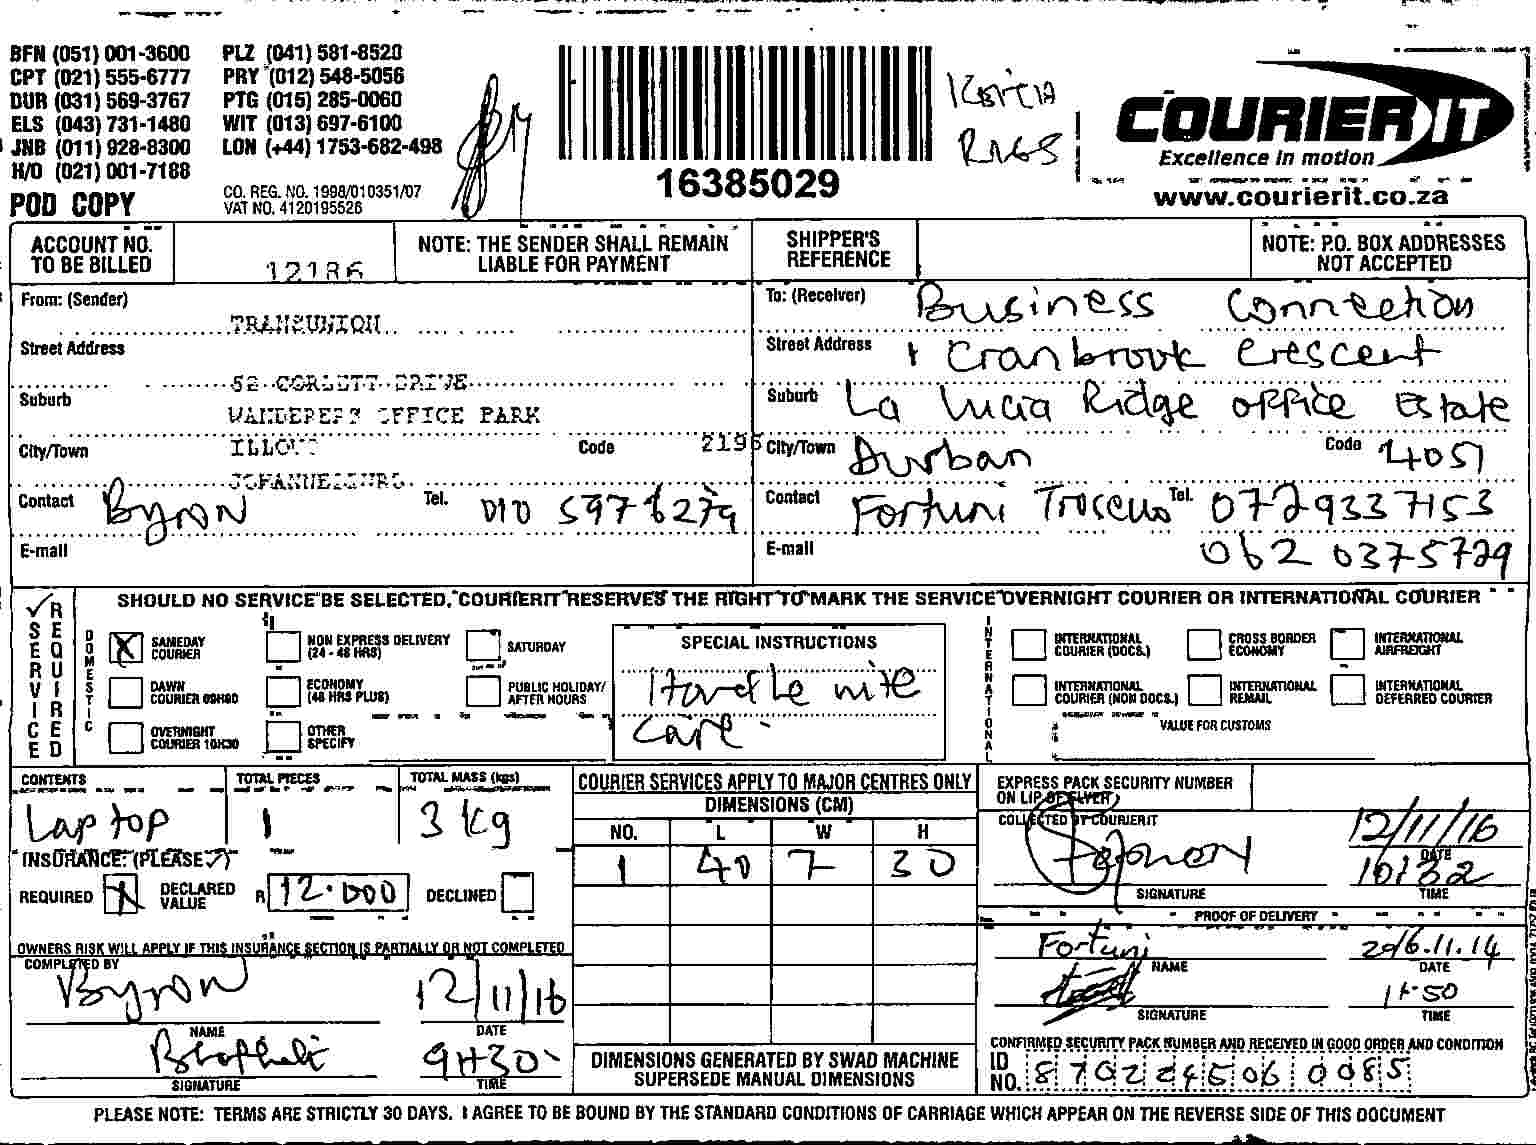 BFN (051) 001-3600 PLZ (041) 581-8520
CPT (021) 555-6777 PRY (012) 548-5056
DUR (031) 569-3767 PTG (015) 285-0060
ELS (043) 731-1480 WIT (013) 697-6100
JNB (011) 928-8300 LON (+44) 1753-682-498
H/O (021) 001-7188
POD COPY
CO. REG. NO. 1998/010351/07
VAT NO. 4120195526
16385029
RAGS
COURIER IT
Excellence in motion
www.courierit.co.za
ACCOUNT NO. TO BE BILLED 12186
NOTE: THE SENDER SHALL REMAIN LIABLE FOR PAYMENT
SHIPPER'S REFERENCE
NOTE: P.O. BOX ADDRESSES NOT ACCEPTED
From: (Sender) TRANSUNION
Street Address 52 CORLETT DRIVE
Suburb WANDERERS OFFICE PARK
City/Town ILLOVO Code 2196
JOHANNESBURG
Contact Byron Tel. 010 597 6279
E-mail
To: (Receiver) Business Connection
Street Address 1 Cranbrook Crescent
Suburb La Lucia Ridge office Estate
City/Town Durban Code 4051
Contact Fortuni Tel. 0729337153
E-mail 062 0375729
✓ SERVICE REQUIRED
SHOULD NO SERVICE BE SELECTED, COURIERIT RESERVES THE RIGHT TO MARK THE SERVICE OVERNIGHT COURIER OR INTERNATIONAL COURIER
DOMESTIC
X SAMEDAY COURIER
NON EXPRESS DELIVERY (24 - 48 HRS)
SATURDAY
DAWN COURIER 09H00
ECONOMY (48 HRS PLUS)
PUBLIC HOLIDAY/ AFTER HOURS
OVERNIGHT COURIER 10H30
OTHER SPECIFY
SPECIAL INSTRUCTIONS
Handle wite
care.
INTERNATIONAL
INTERNATIONAL COURIER (DOCS.)
CROSS BORDER ECONOMY
INTERNATIONAL AIRFREIGHT
INTERNATIONAL COURIER (NON DOCS.)
INTERNATIONAL REMAIL
INTERNATIONAL DEFERRED COURIER
VALUE FOR CUSTOMS
CONTENTS TOTAL PIECES TOTAL MASS (kgs)
Laptop 1 3 kg
INSURANCE: (PLEASE ✓)
REQUIRED X DECLARED VALUE R 12.000 DECLINED
OWNERS RISK WILL APPLY IF THIS INSURANCE SECTION IS PARTIALLY OR NOT COMPLETED
COMPLETED BY
Byron 12/11/16
NAME DATE
9H30
SIGNATURE TIME
COURIER SERVICES APPLY TO MAJOR CENTRES ONLY
DIMENSIONS (CM)
NO. L W H
1 40 7 30
DIMENSIONS GENERATED BY SWAD MACHINE
SUPERSEDE MANUAL DIMENSIONS
EXPRESS PACK SECURITY NUMBER
ON LIP OF FLYER
COLLECTED BY COURIERIT
12/11/16
DATE
10:32
SIGNATURE TIME
PROOF OF DELIVERY
Fortuni 2016.11.14
NAME DATE
11.50
SIGNATURE TIME
CONFIRMED SECURITY PACK NUMBER AND RECEIVED IN GOOD ORDER AND CONDITION
ID NO. 8702245060085
PLEASE NOTE: TERMS ARE STRICTLY 30 DAYS. I AGREE TO BE BOUND BY THE STANDARD CONDITIONS OF CARRIAGE WHICH APPEAR ON THE REVERSE SIDE OF THIS DOCUMENT